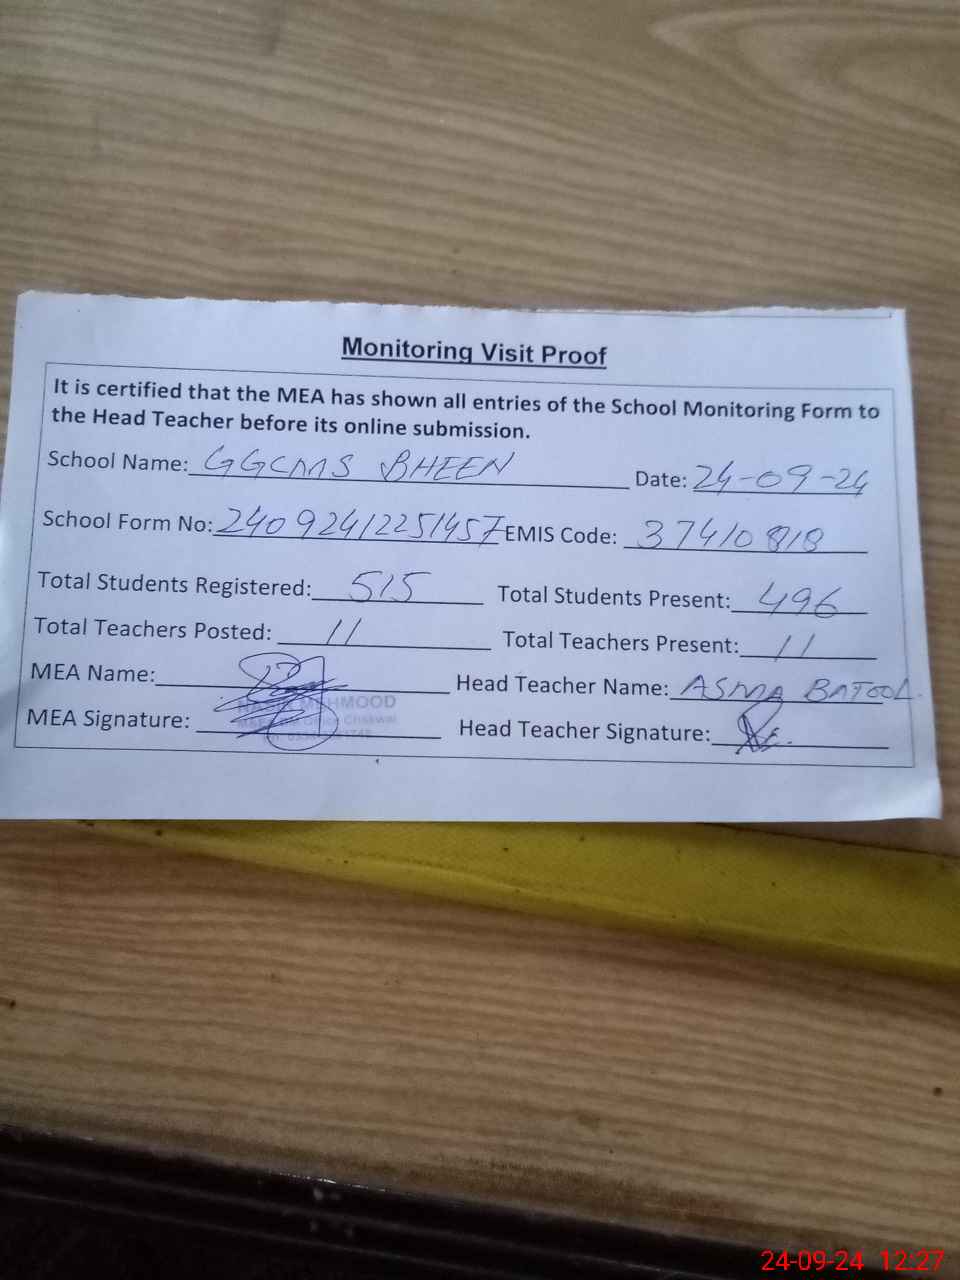 Monitoring Visit Proof
It is certified that the MEA has shown all entries of the School Monitoring Form to
the Head Teacher before its online submission.
School Name: GGCMS BHEEN Date: 24-09-24
School Form No: 24092412251457 EMIS Code: 37410818
Total Students Registered: 515 Total Students Present: 496
Total Teachers Posted: 11 Total Teachers Present: 11
MEA Name: Head Teacher Name: ASMA BATOOL.
MEHMOOD
Office Chakwal
MEA Signature: Head Teacher Signature:
24-09-24 12:27